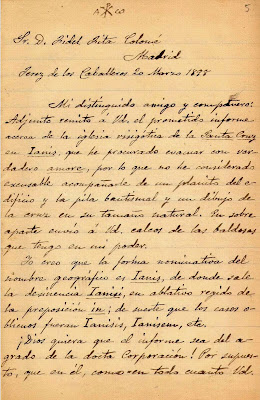 5
Sr. D. Fidel Fita Colomé
Madrid
Jerez de los Caballeros 20 Marzo 1897
Mi distinguido amigo y compañero:
Adjunto remito á Vd. el prometido informe
acerca de la iglesia visigótica de la Santa Cruz
en Ianis, que he procurado evacuar con ver-
dadero amore, por lo que no he considerado
excusable acompañarle de un planito del e-
dificio y la pila bautismal y un dibujo de
la cruz en su tamaño natural. En sobre
aparte envío á Vd. calcos de las baldosas
que tengo en mi poder.
Yo creo que la forma nominativa del
nombre geográfico es Ianis, de donde sale
la desinencia Ianisi, en ablativo regido de
la preposición in; de suerte que los casos o-
blicuos fueran Ianisis, Ianisem, etc.
¡Dios quiera que el informe sea del a-
grado de la docta Corporación! Por supues-
to, que en él, como en todo cuanto Vd.